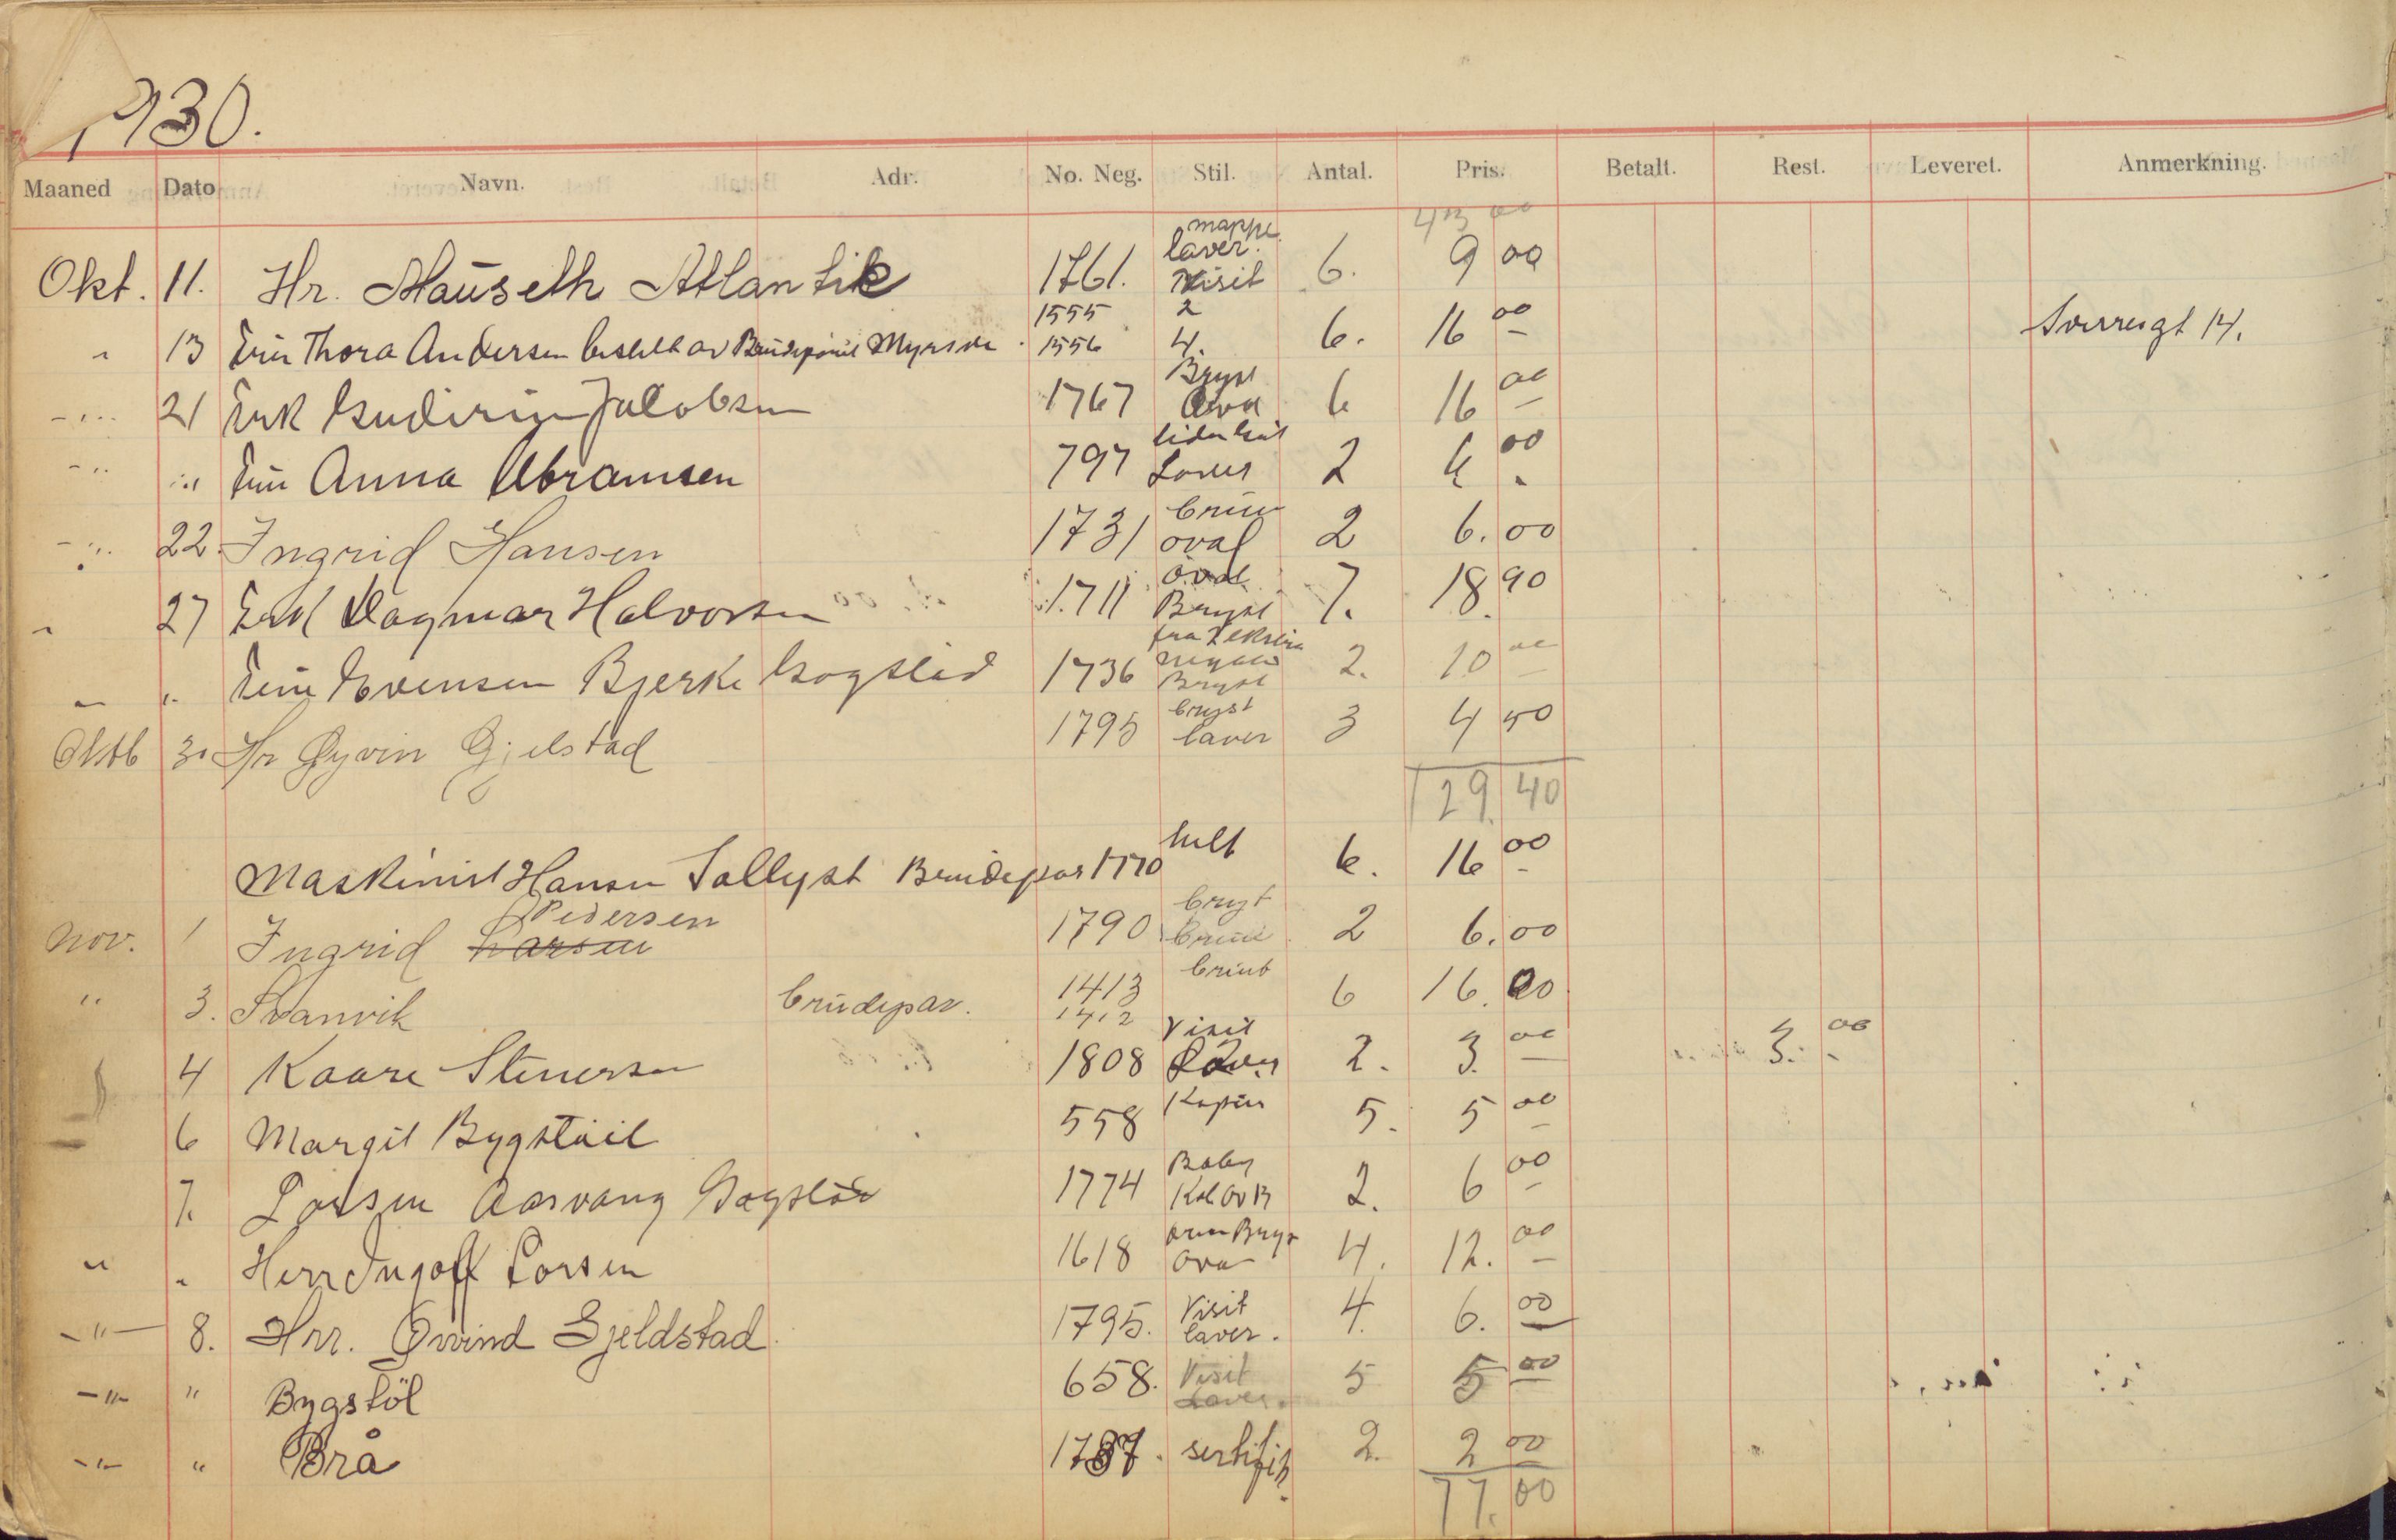 1930.
Maaned Dato Navn. Adr. No. Neg. Stil. Antal. Pris. Betalt. Rest. Leveret. Anmerkning.
43 00
mappe
Okt. 11. Hr. Mauseth Atlantik 1761. laver. Visit 6. 9 00
" 13 Fru Thora Andersen bestelt av Brudeparet 1555 1556 2 4. 6. 16 00
-"- 21 Frk Gudrun Jakobsen 1767 Bryst Oval 6 16 00
-"- " Fru Anna Abramsen 797 Laver 2 6 00
-"- 22. Ingrid Hansen 1731 brun oval 2 6.00
" 27 Frk Dagmar Halvorsen 1711 oval Bryst 7. 18.90
" " Fru Evensen Bjerke Gogstad 1736 Bryst 2. 10 00
Oktb 31 Hr Øyvin Gjelstad 1795 bryst laver 3 4 50
129.40
Maskinist Hansen Sollyst Brudepar 1770 helt 6. 16 00
Pedersen
Nov. 1 Ingrid Larsen 1790 bryst brun 2 6.00
" 3. Svanvik brudepar. 1413 1412 brunt 6 16.00
4 Kaare Stenersen 1808 Visit Laver 2. 3. 00 3. 00
6 Margit Bygstöil 558 5. 5 00
7. Larsen Aasvang Gogstad 1774 Baby 2. 6 00
" " Herr Ingolf Larsen 1618 Bryst Oval 4. 12. 00
-"- 8. Hrr. Øivind Gjeldstad. 1795. Visit laver. 4. 6. 00
-"- " Bygstöl 658. Visit Laver. 5 5 00
-"- " Brå 1787. sertifik. 2. 2 00
77.00